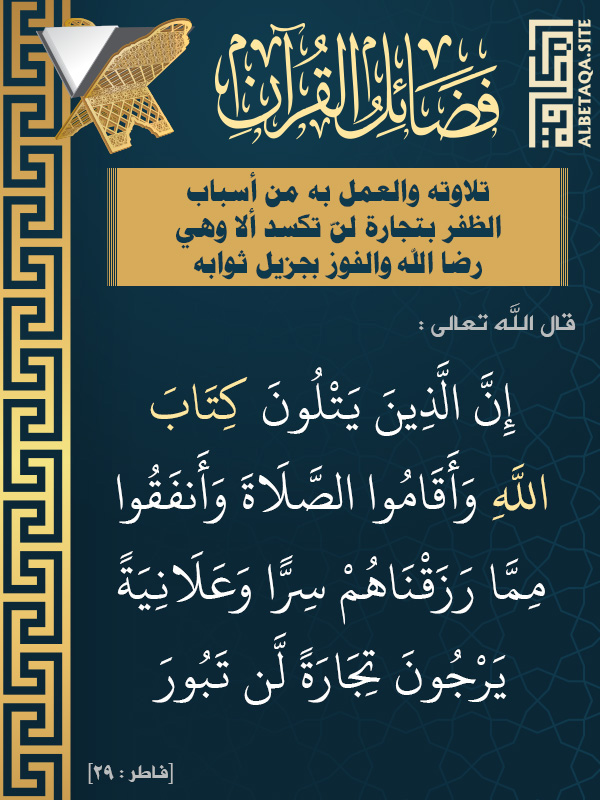 فَضَائِلُ القُرْآنِ
البطاقة
ALBETAQA.SITE
تلاوته والعمل به من أسباب
الظفر بتجارة لن تكسد ألا وهي
رضا الله والفوز بجزيل ثوابه
قال اللَّه تعالى :
إِنَّ الَّذِينَ يَتْلُونَ كِتَابَ
اللَّهِ وَأَقَامُوا الصَّلَاةَ وَأَنفَقُوا
مِمَّا رَزَقْنَاهُمْ سِرًّا وَعَلَانِيَةً
يَرْجُونَ تِجَارَةً لَّن تَبُورَ
[فاطر : ٢٩]